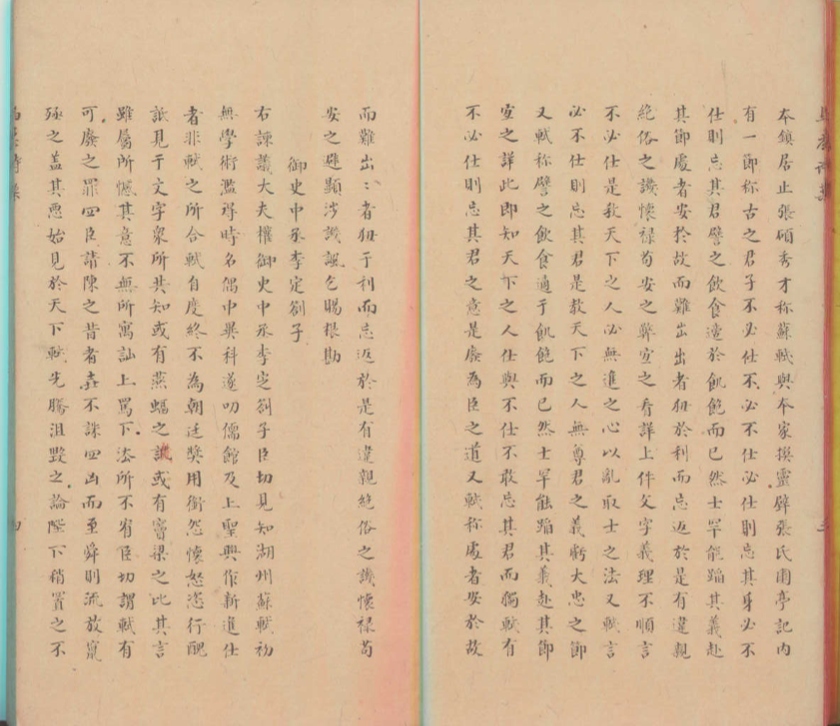 本鎮居止張碩秀才称蘇軾與本家撰靈壁張氏園亭記内
有一節称古之君子不必仕不必不仕必仕則忘其身必不
仕則忘其君譬之飲食適於飢飽而已然士罕能蹈其義赴
其節處者安於故而難出出者狃於利而忘返於是有違親
絶俗之譏懷禄苟安之弊宣之看詳上件文字義理不順言
不必仕是教天下之人必無進之心以亂取士之法又軾言
必不仕則忘其君是教天下之人無尊君之義虧大忠之節
又軾称譬之飲食適于飢飽而已然士罕能蹈其義赴其節
宣之詳此即知天下之人仕與不仕不敢忘其君而獨軾有
不必仕則忘其君之意是廢為臣之道又軾称處者安於故
而難出〻者狃于利而忘返於是有違親絶俗之譏懷禄苟
安之避顯涉譏諷乞賜根勘
御史中丞李定劄子
右諫議大夫權御史中丞李定劄子臣切見知湖州蘇軾初
無學術濫得時名偶中異科遂叨儒館及上聖興作新進仕
者非軾之所合軾自度終不為朝廷奬用銜怨懷怒恣行醜
詆見于文字衆所共知或有燕蝠之譏或有竇梁之比其言
雖屬所憾其意不無所寓訕上罵下法所不宥臣切謂軾有
可廢之罪四臣請陳之昔者堯不誅四凶而至舜則流放竄
殛之盖其惡始見於天下軾先騰沮毀之論陛下稍置之不